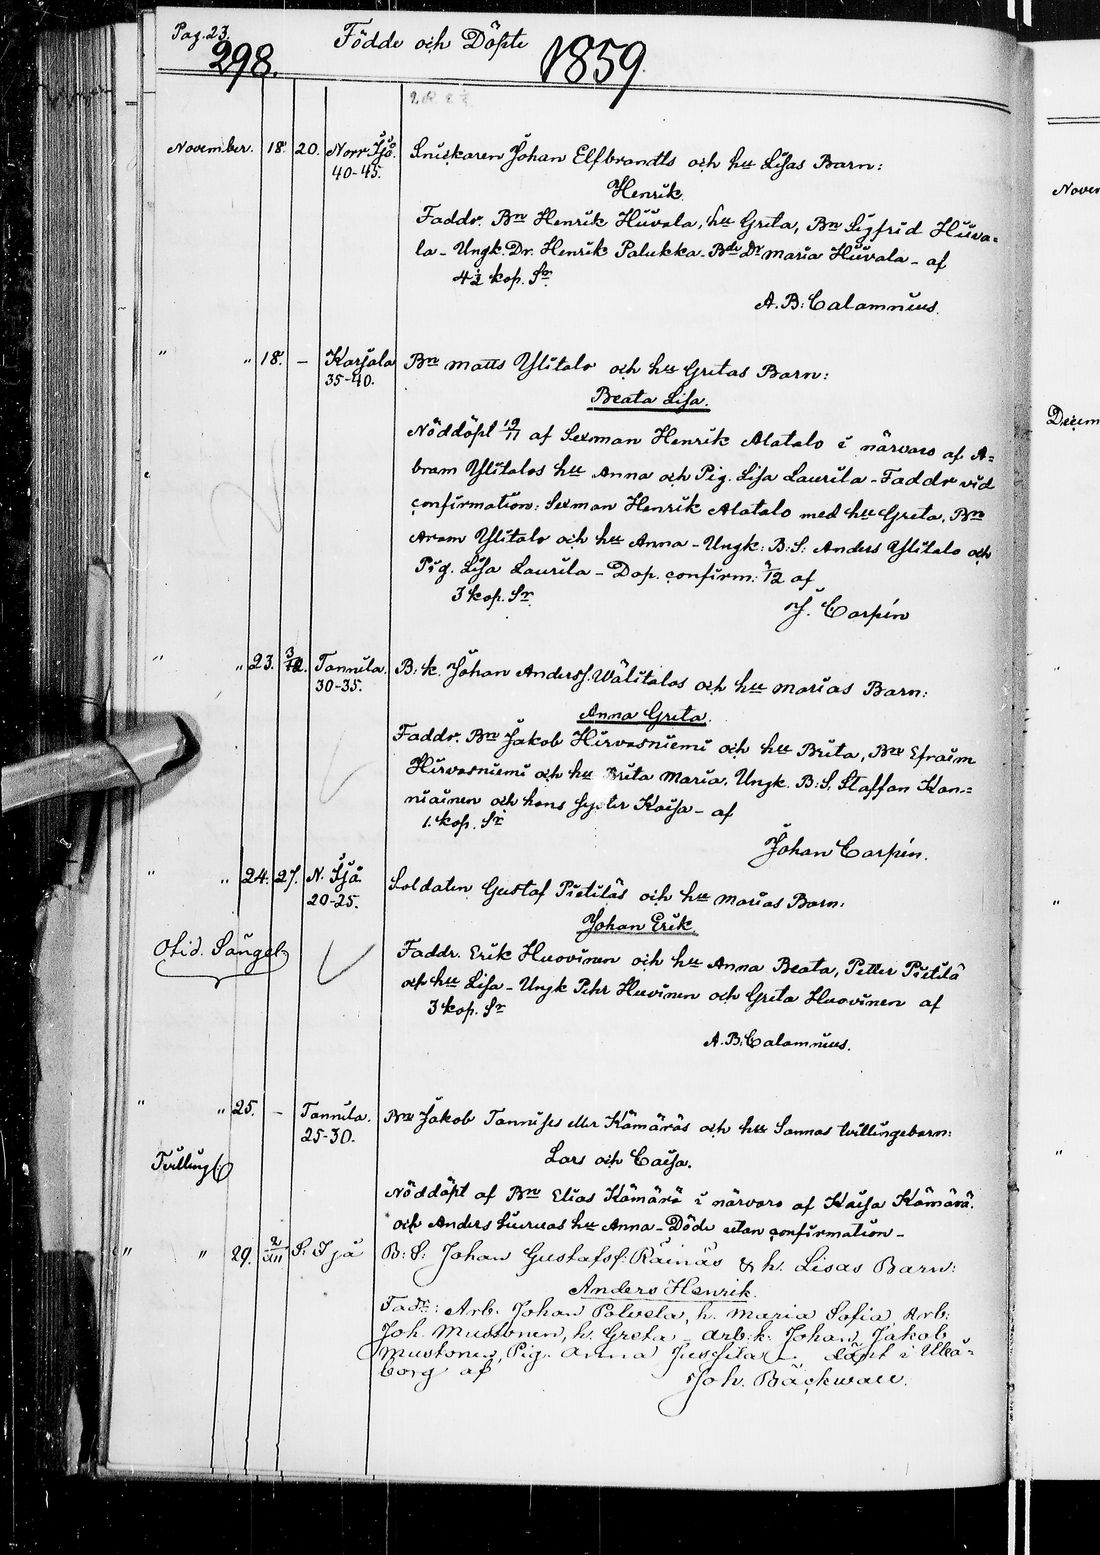 Pag. 23.
298.
Födde och Döpte 1859.
November. 18. 20. Norr Ijå. Snickaren Johan Elfbrandts och hu Lisas Barn:
40-45.
Henrik.
Faddr. Bn Henrik Hüvola, hu Greta, Bn Sigfrid Hüvo=
la - Ungk. Dr. Henrik Palukka - Bde Dr Maria Hüvala - af
4½ kop. Sr.
A. B: Calamnius.
" " 18. - Karjala Bn Matts Ylitalo och hu Gretas Barn:
35-40.
Beata Lisa.
Nöddöpt 19/11 af Sexman Henrik Alatalo i närvaro af A=
bram Ylitalos hu Anna och Pig. Lisa Laurila - Faddr vid
confirmation: Sexman Henrik Alatalo med hu Greta, Bn
Aram Ylitalo och hu Anna - Ungk: B: S: Anders Ylitalo och
Pig. Lisa Laurila - Dop. confirm: 3/12 af
3 kop. Sr.
J. Carpén
" " 23. 3/12. Tannila. B: k. Johan Andersf. Wälitalos och hu Marias Barn:
30-35.
Anna Greta.
Faddr. Bn Jakob Hirvasniemi och hu Brita, Bn Efraim
Hirvasniemi och hu Brita Maria. Ungk. B: S. Staffan Kan=
niainen och hans syster Kaisa - af
1. kop. Sr
Johan Carpén.
" " 24. 27. N. Ijå. Soldaten Gustaf Pietiläs och hu Marias Barn:
20-25.
Johan Erik
Otid. Sängel.
Faddr. Erik Huovinen och hu Anna Beata, Petter Pietilä
och hu Lisa - Ungk Pehr Huvinen och Greta Huovinen af
3 kop. Sr
A. B: Calamnius.
" " 25. - Tannila. Bn Jakob Tannises eller Kämäräs och hu Sannas tvillingebarn:
25-30.
Tvilling
Lars och Caisa.
Nöddöpt af Bn Elias Kämärä i närvaro af Kaisa Kämärä.
och Anders hu Anna - Döde utan confirmation -
" " 29. 2/XII S. Ijå B: S: Johan Gustafsf: Räinäs & h. Lisas Barn:
Anders Henrik.
Fadr: Arb. Johan Palvela, h. Maria Sofia, Arb:
Joh. Mustonen, h. Greta - arb: k. Johan Jakob
Mustonen, Pig. Anna döpt i Uleå=
borg af Joh. Bäckwall.